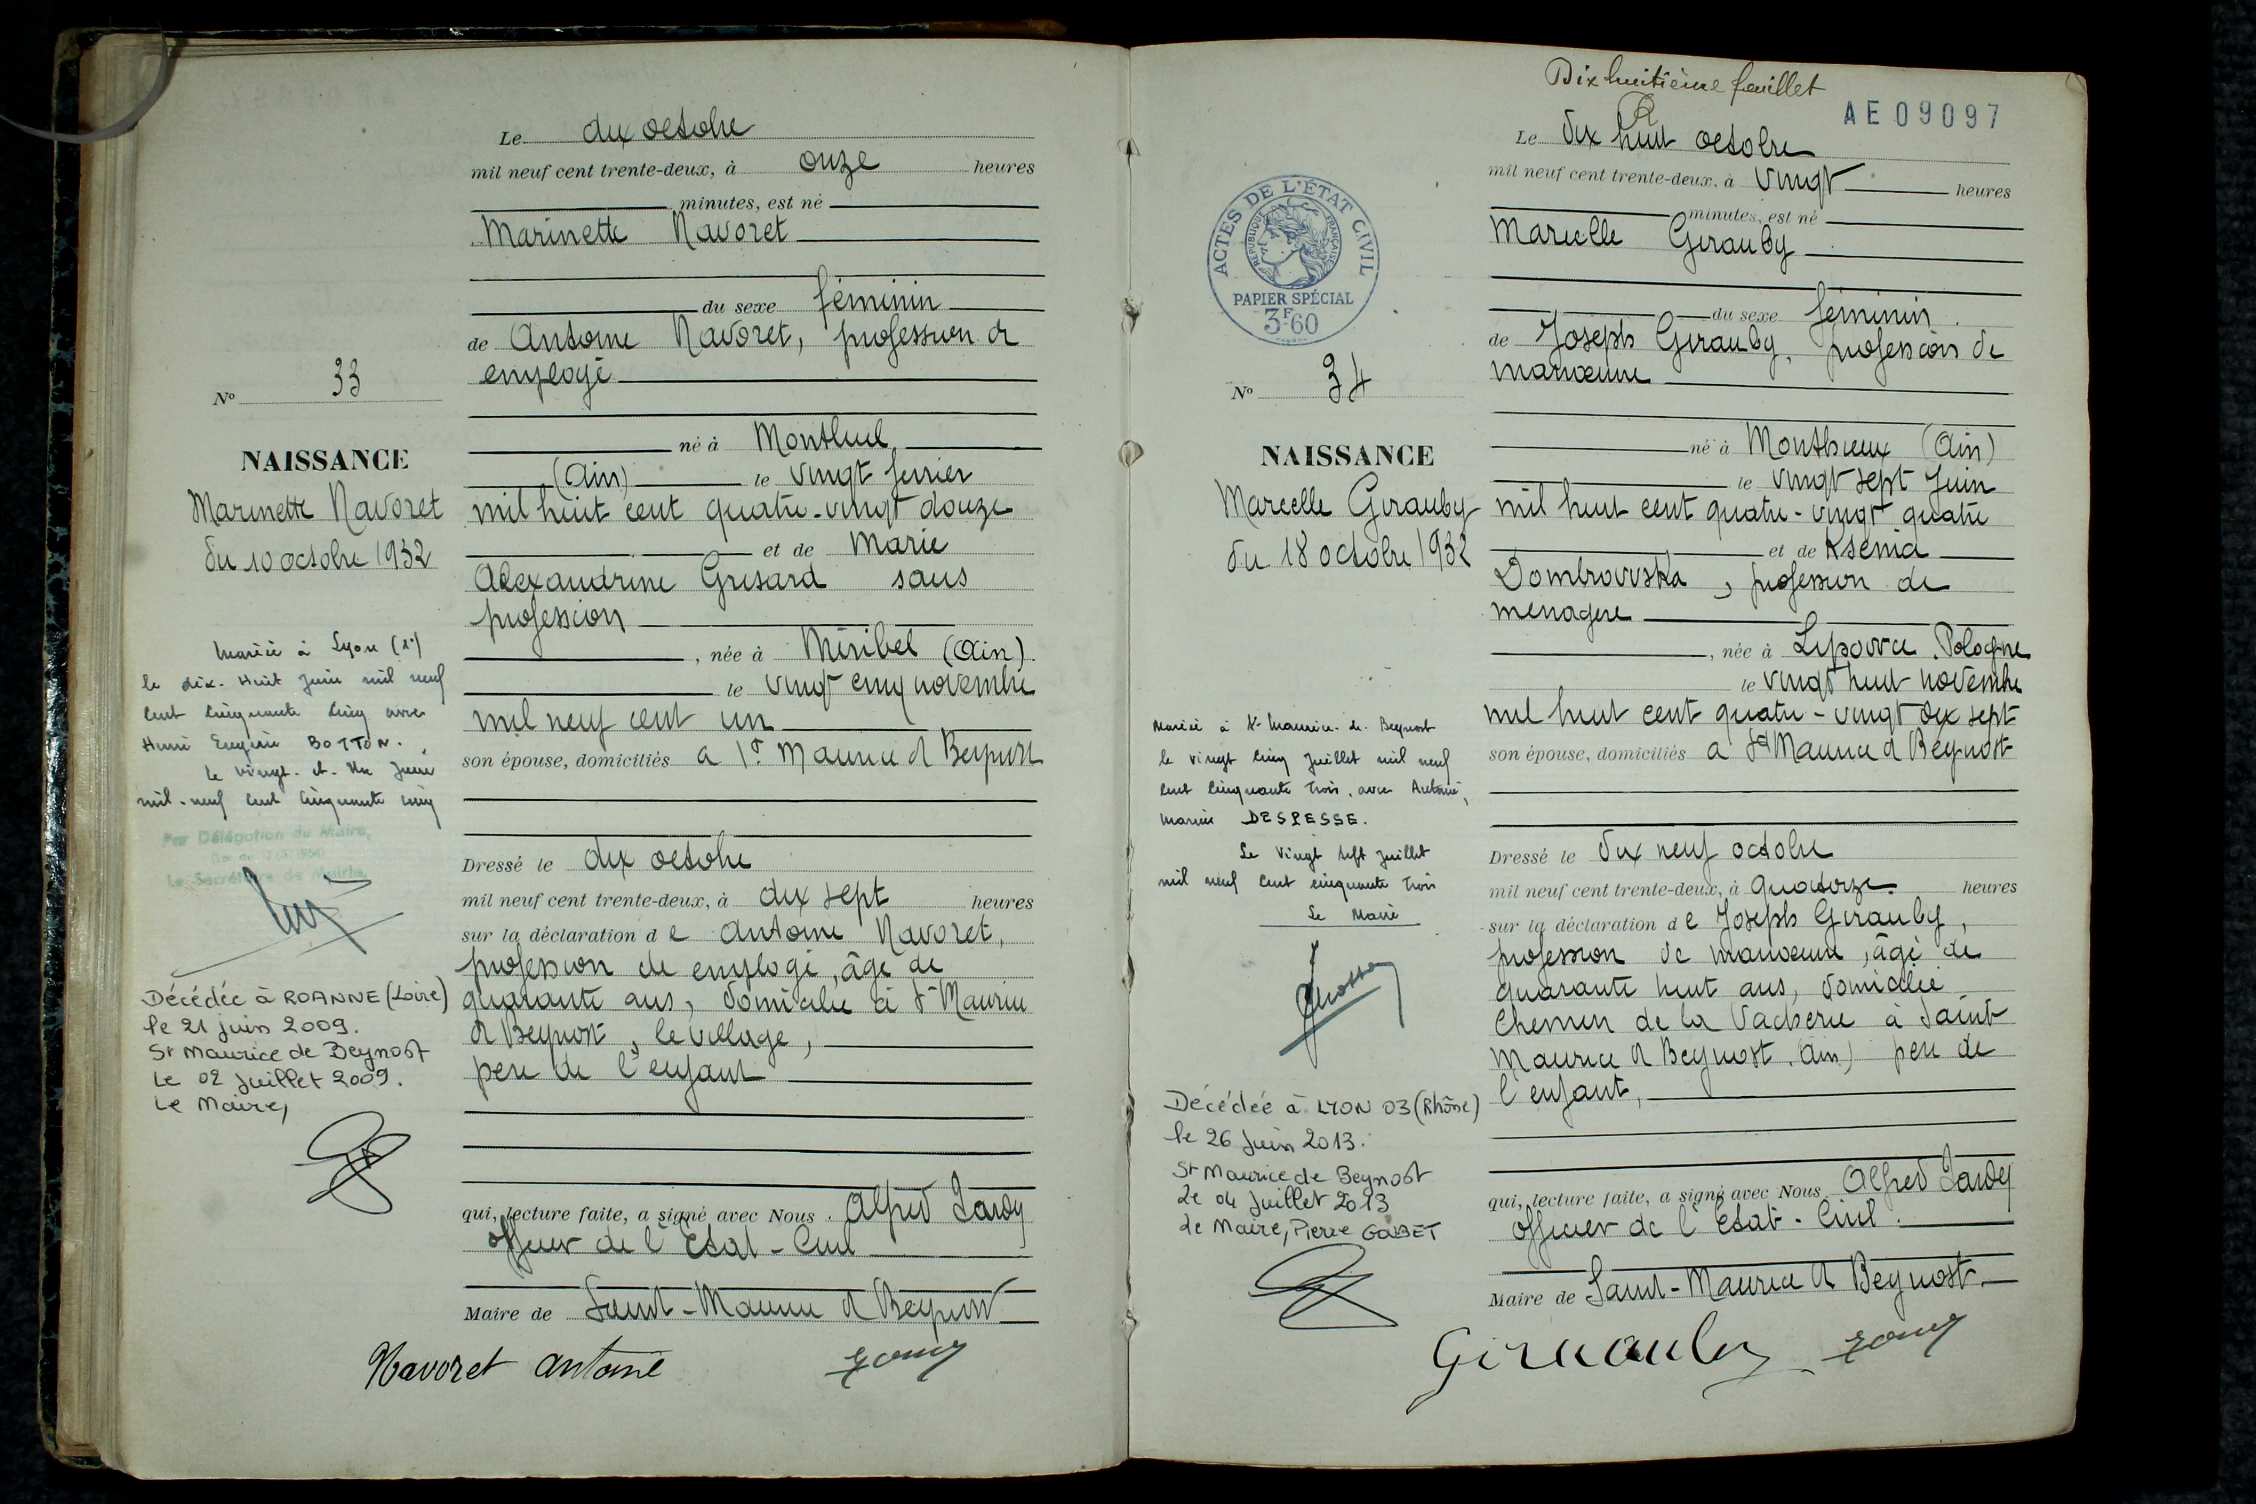 Le dix octobre
mil neuf cent trente-deux, à onze heures
minutes, est né
Marinette Navoret
du sexe féminin
de Antoine Navoret, profession de
employé
né à Montluel
(Ain) le vingt fevrier
mil huit cent quatre-vingt douze
et de Marie
Alexandrine Grisard sans
profession
, née à Miribel (Ain)
le vingt cinq novembre
mil neuf cent un
son épouse, domiciliés a St Maurice d Beynost
Dressé le dix octobre
mil neuf cent trente-deux, à dix sept heures
sur la déclaration d e Antoine Navoret,
profession de employé, âgé de
quarante ans, domicilié à St Maurice
d Beynost, le village,
père de l'enfant
qui, lecture faite, a signé avec Nous Alfred Jardy
officier de l'Etat-Civil
Maire de Saint-Maurice d Beynost
Navoret Antoine
No 33
NAISSANCE
Marinette Navoret
du 10 octobre 1932
Mariée à Lyon (1º)
le dix-huit juin mil neuf
cent cinquante cinq avec
Henri Eugène BOTTON.
le vingt-et-un juin
mil-neuf cent cinquante cinq
Par Délégation du Maire,
Le Secrétaire de Mairie,
Décédée à ROANNE (Loire)
le 21 juin 2009.
St Maurice de Beynost
Le 02 juillet 2009.
Le Maire,
Dix huitième feuillet
AE09097
Le dix huit octobre
mil neuf cent trente-deux, à vingt heures
minutes, est né
Marcelle Girauby
du sexe féminin
de Joseph Girauby, profession de
manœuvre
né à Monthieux (Ain)
le vingt sept juin
mil huit cent quatre-vingt quatre
et de Ksenia
Dombrowska, profession de
ménagère
, née à Lipowce Pologne
le vingt huit novembre
mil huit cent quatre-vingt dix sept
son épouse, domiciliés a St Maurice d Beynost
Dressé le dix neuf octobre
mil neuf cent trente-deux, à quatorze heures
sur la déclaration d e Joseph Girauby,
profession de manœuvre, âgé de
quarante huit ans, domicilié
Chemin de la Vacherie à Saint
Maurice d Beynost (Ain) père de
l'enfant,
qui, lecture faite, a signé avec Nous Alfred Jardy
officier de l'Etat-Civil.
Maire de Saint-Maurice d Beynost
Girauby
ACTES DE L'ÉTAT CIVIL
RÉPUBLIQUE FRANÇAISE
PAPIER SPÉCIAL
3F60
No 34
NAISSANCE
Marcelle Girauby
du 18 octobre 1932
Mariée à St-Maurice-de-Beynost
le vingt cinq juillet mil neuf
cent cinquante trois, avec Antoine,
Marius DESPESSE.
Le vingt sept juillet
mil neuf cent cinquante trois
Le Maire
Décédée à LYON 03 (Rhône)
le 26 juin 2013.
St Maurice de Beynost
Le 04 juillet 2013
Le Maire, Pierre GOUBET